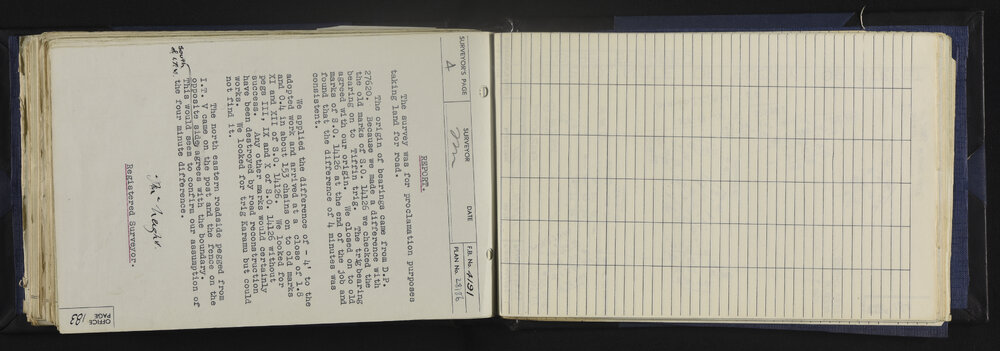 SURVEYOR'S PAGE
A
SURVEYOR
DATE
F.B. No. 4191
PLAN No.
REPORT.
The survey was for proclamation purposes
taking land for road.
The origin of bearings came from D.P.
27620. Because we made a difference with
the old marks of S.O. 14126 we checked the
bearing on to Tiffin trig. The trig bearing
agreed with our origin. We closed on to old
marks of S.O. 14126 at the end of the job and
found that the difference of 4 minutes was
consistent.
We applied the difference of - 4' to the
adopted work and arrived at a close of 1.5
and 0.4 in about 153 chains on to old marks
XI and XII of S.O. 14126. We looked for
pegs III, IX and X of S.O. 14126 without
success. Any other marks would certainly
have been destroyed by road reconstruction
works. We looked for trig Karamu but could
not find it.
The north eastern roadside pegged from
I.T. V came on the post and the fence on the
opposite side agrees with the boundary.
South
of I.T. V.
This would seem to confirm our assumption of
the four minute difference.
Registered Surveyor.
OFFICE PAGE 183